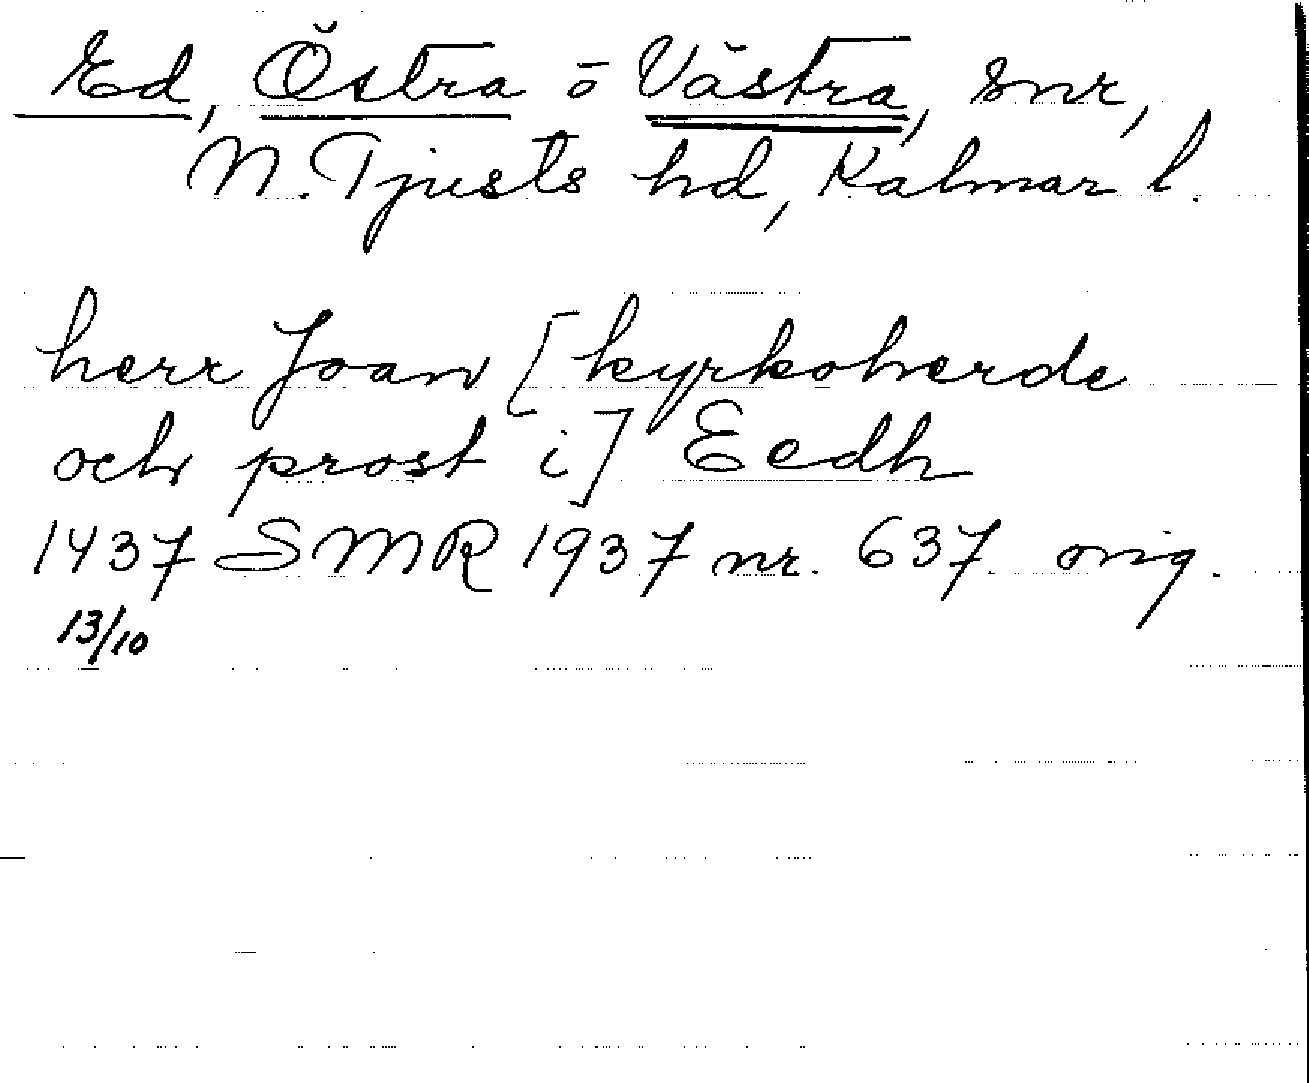 Ed, Östra o Västra, snr,
N. Tjusts hd, Kalmar l.
herr Joan [kyrkoherde
och prost i] Eedh
1437 SMR 1937 nr. 637 orig.
13/10